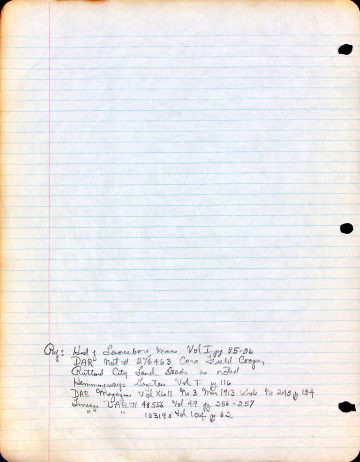 Hist of Lanesboro, Mass Vol I pg 85-86
DAR Nat # 276463 Cora Field Cooper
Rutland City Land Deeds as noted
Hemingways Gazetteer Vol I pg 116
DAR Magazine Vol XLII No 3 Mar 1913 Whole No 248 pg 184
Lineage DAR # 48556 Vol 49 pg 256-257
" " 103190 Vol 104 pg 62